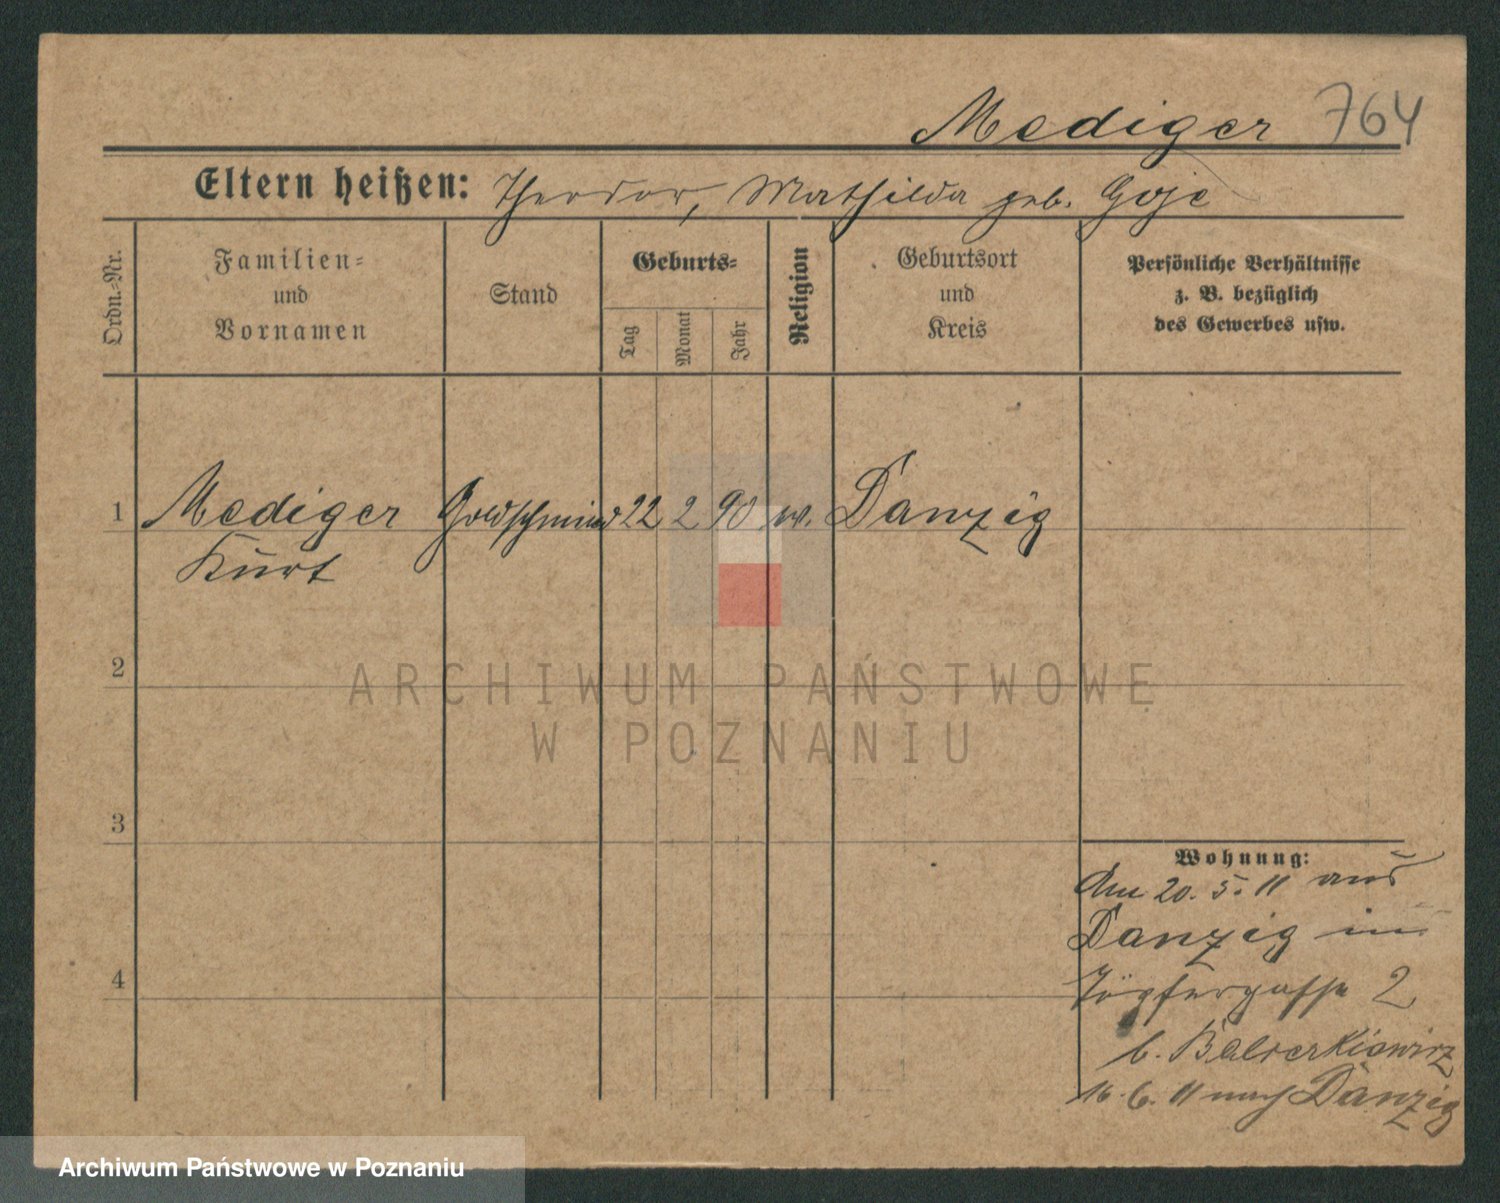 Mediger 764
Eltern heißen: Theodor, Mathilda geb. Goje
Ordn.-Nr.
Familien-
und
Vornamen
Stand
Geburts-
Tag
Monat
Jahr
Religion
Geburtsort
und
Kreis
Persönliche Verhältnisse
z. B. bezüglich
des Gewerbes usw.
1 Mediger Goldschmied 22 2 90 w. Danzig
Kurt
2
3
4
Wohnung:
Am 20. 5. 11 aus
Danzig in
Töpfergasse 2
b.
16. 6. 11 nach Danzig
ARCHIWUM PAŃSTWOWE
W POZNANIU
Archiwum Państwowe w Poznaniu